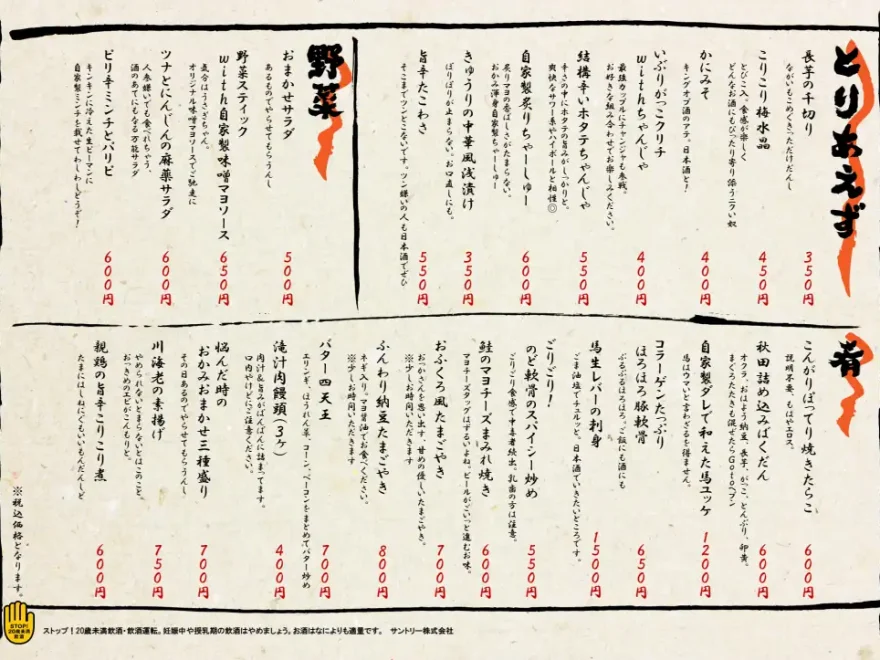 とりあえず
長芋の千切り
ながいもこめぐきっただけだんし
350円
こりこり梅水晶
とびこ入。食感が楽しく
どんなお酒にもぴったり寄り添うニクい奴
450円
かにみそ
キングオブ酒のアテ。日本酒と!
400円
いぶりがっこクリチ
withちゃんじゃ
最強カップルにチャンジャも参戦。
お好きな組み合わせでお楽しみください。
400円
結構辛いホタテちゃんじゃ
辛さの中にホタテの旨みがしっかりと。
爽快なサワー系やハイボールと相性◎
550円
自家製炙りちゃーしゅー
炙りマヨの香ばしさがたまらない、
おかみ渾身自家製ちゃーしゅー
600円
きゅうりの中華風浅漬け
ぽりぽりが止まらない。お口直しにも。
350円
旨辛たこわさ
そこまでツンとこないです。ツン嫌いの人も日本酒でぜひ
550円
野菜
おまかせサラダ
あるものでやらせてもらうんし
500円
野菜スティック
with自家製味噌マヨソース
気分はうさぎちゃん。
オリジナル味噌マヨソースでご馳走に
650円
ツナとにんじんの麻薬サラダ
人参嫌いでも食べれちゃう、
酒のあてにもなる万能サラダ
600円
ピリ辛ミンチとパリピ
キンキンに冷えた生ピーマンに
自家製ミンチを載せてわしわしどうぞ!
600円
肴
こんがりぽってり焼きたらこ
説明不要、もはやエロス。
600円
秋田詰め込みばくだん
オクラ、おはよう納豆、長芋、がっこ、とんぶり、卵黄。
まぐろたたきも混ぜたらGotoヘブン
600円
自家製ダレで和えた馬ユッケ
馬はウマいと言わざるを得ません。
1200円
コラーゲンたっぷり
ほろほろ豚軟骨
ぷるぷるほろほろ。ご飯にも酒にも
650円
馬生レバーの刺身
ごま油塩でチュルッと。日本酒でいきたいところです。
1500円
ごりごり!
のど軟骨のスパイシー炒め
ごりごり食感で中毒者続出。乳歯の方は注意。
550円
鮭のマヨチーズまみれ焼き
マヨチーズタッグはずるいよね。ビールがごいっと進むお味。
600円
おふくろ風たまごやき
おっかさんを思い出す、甘めの優しいたまごやき。
※少しお時間いただきます
700円
ふんわり納豆たまごやき
ネギ入り。マヨ醤油でお食べください。
※少しお時間いただきます
800円
バター四天王
エリンギ、ほうれん草、コーン、ベーコンをまとめてバター炒め
700円
滝汁肉饅頭(3ヶ)
肉汁&旨みがぱんぱんに詰まってます。
口内やけどにご注意ください。
400円
悩んだ時の
おかみおまかせ三種盛り
その日あるのでやらせてもらうんし
700円
川海老の素揚げ
やめられないとまらないとはこのこと。
おっきめのエビがこんもりと。
750円
親鶏の旨辛こりこり煮
たまにはしねにぐもいいもんだんしど
600円
※税込価格となります。
STOP!
20歳未満
飲酒
ストップ!20歳未満飲酒・飲酒運転。妊娠中や授乳期の飲酒はやめましょう。お酒はなによりも適量です。 サントリー株式会社